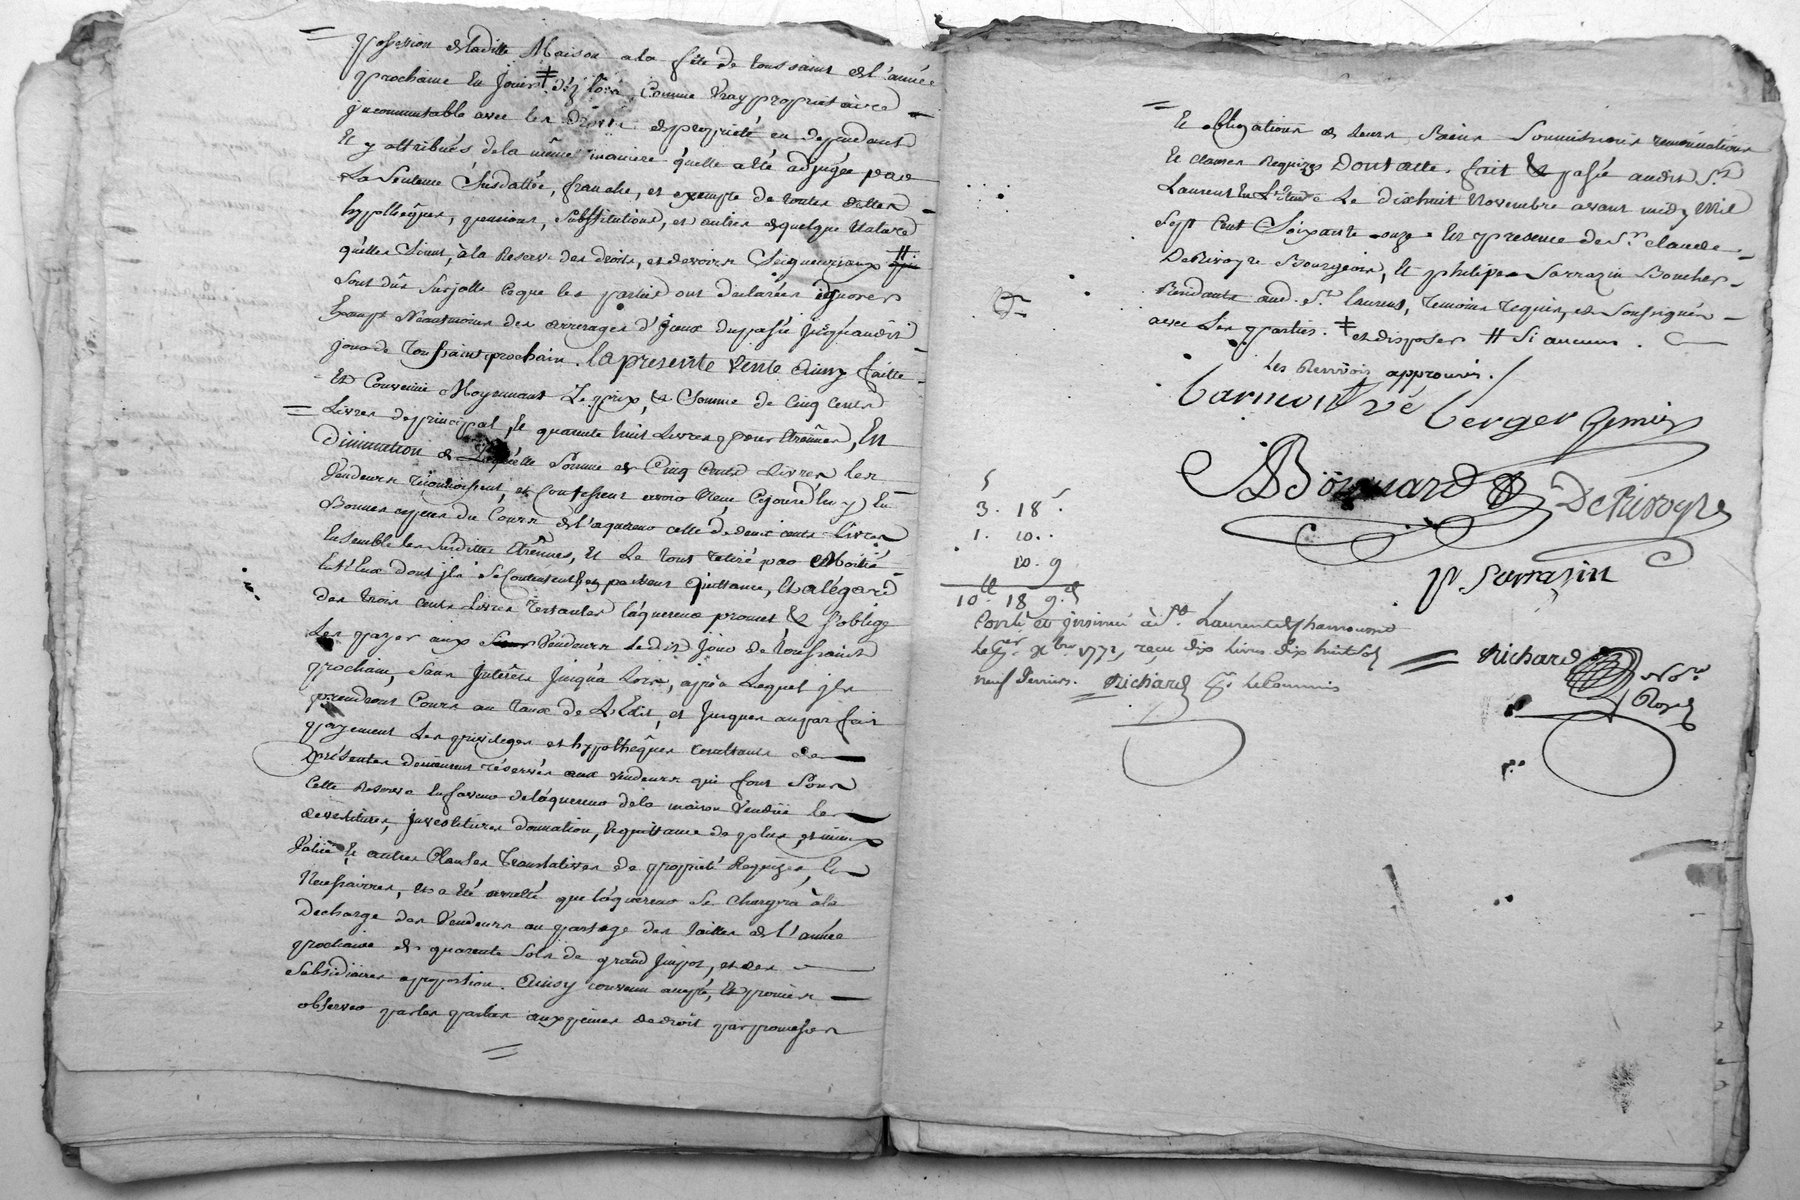 possession de laditte Maison a la fête de toussaint de l'année
prochaine En Jouir ⧧ dez lors Comme Vray proprietaire
jncommutable avec les droits de proprieté en dependant
Et y attribués de la même maniere quelle a été adjugée par
La Sentence Susdattée, franche, et exempte de toutes dettes
hypothèques, pensions, Substitutions, et autres de quelque Nature
qu'elles Soient, à la Reserve des droits, et devoirs Seigneuriaux ⧺
Sont dûs Sur jcelle ce que les parties ont declarées ignorer
Exempt Néantmoins des arrerages d'jceux du passé jusqu'audit
jour de Toussaint prochain. la presente Vente Ainsy faitte
Et Convenue Moyennant Le prix, et Somme de Cinq cents
Livres de principal, et quarente huit Livres pour Etrênnes, En
Diminution de Laquelle Somme de Cinq Cents Livres les
Vendeurs reconnoissent, et Confessent avoir Reçu Cejourd'huy En
Bonnes espèces du Cours de l'aquereur celle de deux cents Livres
Ensemble les Susdittes Etrênnes, Et Le tout retiré par Moitié
Entr'Eux dont jls Se Contentent, Quittance, Et a l'égard
des trois cents Livres restantes l'aquereur promet & s'oblige
Les payer aux Vendeurs ledit Jour de toussaint
prochain, Sans Jnterêts Jusqu'a Lors, après Lequel jls
prendront Cours au taux de L'Edit, et Jusques au parfait
payement Les privileges et hypothèques resultants des
présentes demeurent réservés aux vendeurs qui font Sous
Cette Reserve En faveur de l'aquereur de la maison Vendüe les
devestitures, jnvestitures donnation, Et quittance de plus, et mieux
Value et autres Clauses Translatives de proprieté Requises, Et
Necessaires, et a été arretté que l'aquereur Se Chargera à la
Decharge des Vendeurs au partage des tailles de l'année
prochaine de quarente Sols de grand jmpot, et des
Subsidiaires a proportion. Ainsy convenu accepté, Et promis
observer par les parties aux peines de droit par promesses
Et obligations de leurs Biens Soumissions renonciations
Et Clauses Requises Dont acte. fait & passé audit St
Laurent En L'Etude Le dixhuit Novembre avant midy Mil
Sept Cent Soixante onze En presence de Sr Claude
DeRivoyre Bourgeois, Et philipe Sarrazin Boucher
Residants aud. St laurent, Temoins requis, et Soussignés
avec Les parties. ⧧ et disposer ⧺ Si aucuns.
Les Renvois approuvés.
berger
DeRivoyre
p. Sarrazin
3. 18
1. 10..
10. 9
10ll 18 9d
Contlé et jnsinué à St. Laurent de Chamousset
Le xbre 1771, reçu dix livres dix huit Sols
neuf deniers. Richard Le Commis
Richard Nore
Royal